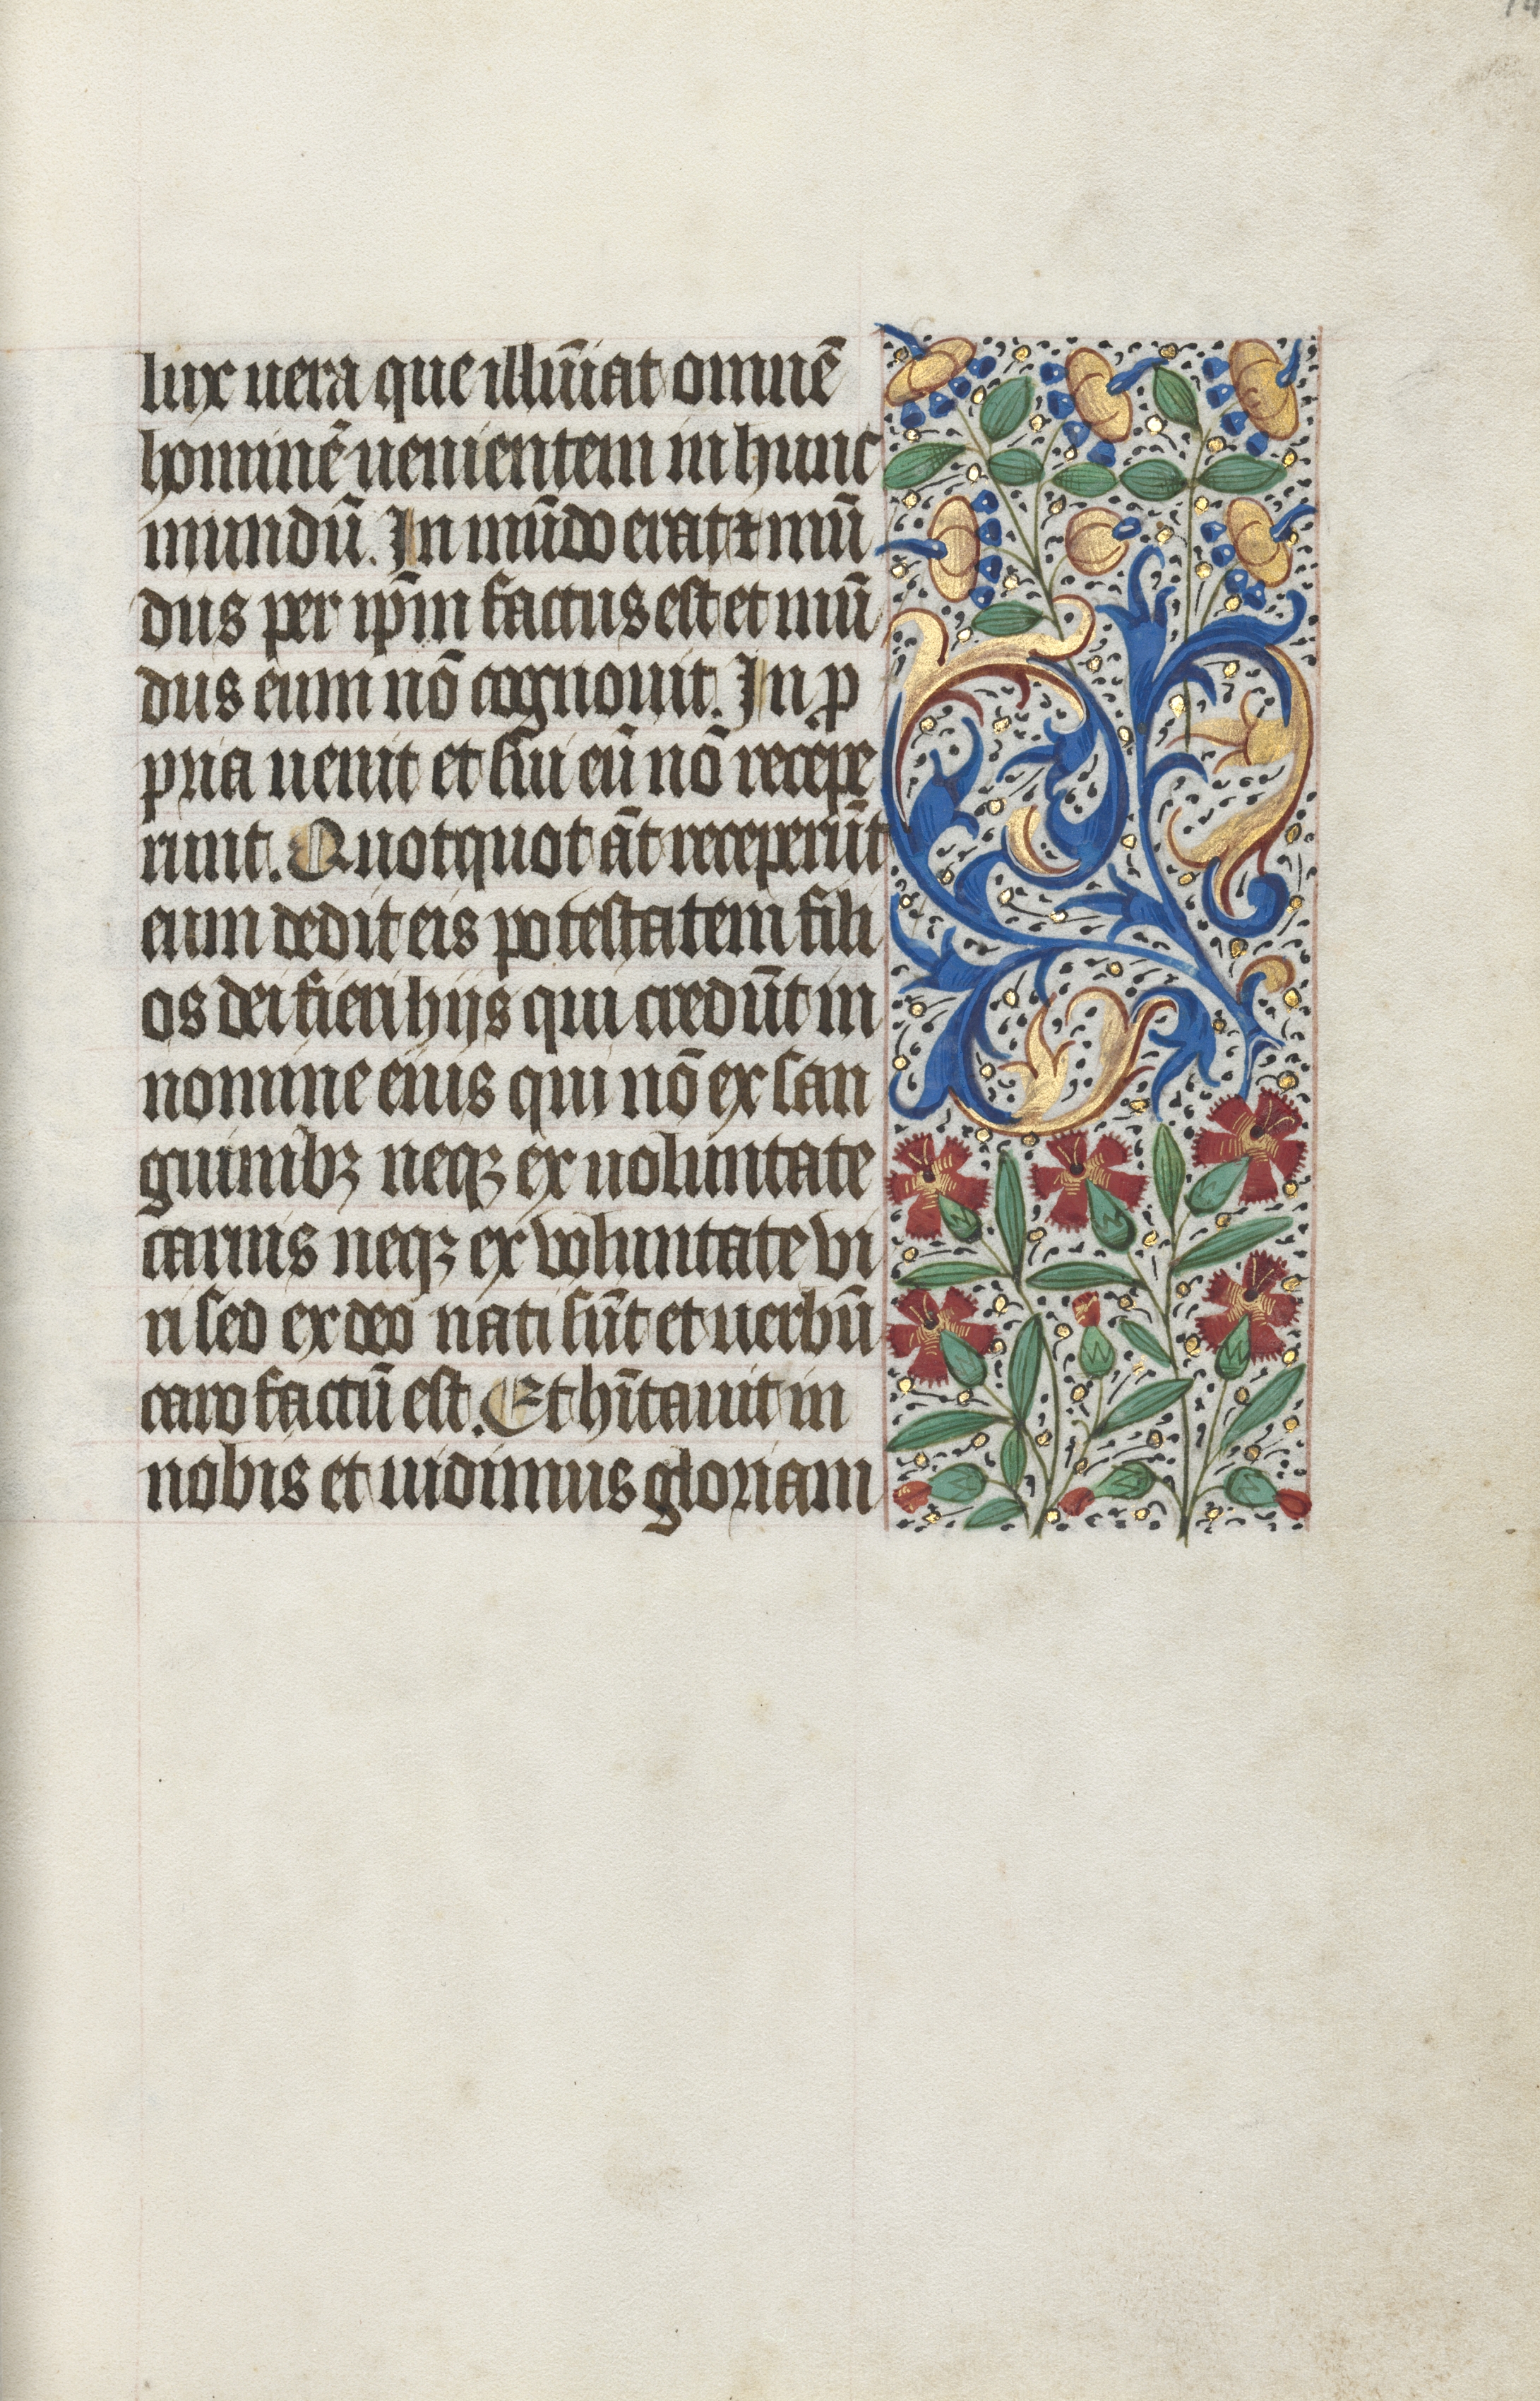 lux uera que illum̄iat omnē
hominē uenientem in hunc
mundū. In mūdo erat ⁊ mū
dus per ip̄m factus est et mū
dus eum nō cognouit. In p
pria uenit et sui eū nō recepe
runt. Quotquot āt receperūt
eum dedit eis potestatem fili
os dei fieri hijs qui credūt in
nomine eius qui nō ex san
guinibꝫ neqꝫ ex uoluntate
carnis neqꝫ ex voluntate vi
ri sed ex deo nati sūt et uerbū
caro factū est. Et hītauit in
nobis et uidimus gloriam